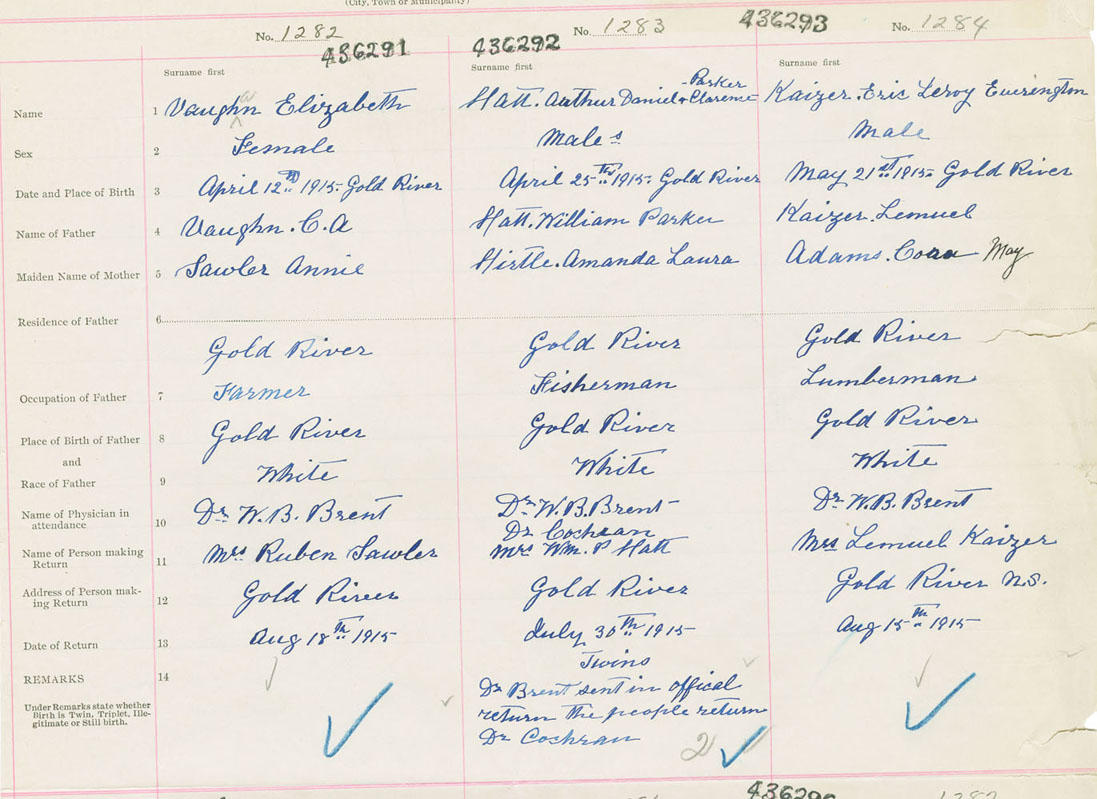 (City, Town or Municipality)
No. 1282
436291
436292
No. 1283
436293
No. 1284
Surname first
Surname first
Surname first
Name
1
Vaughn Elizabeth
Hatt. Arthur Daniel & Clarence
Parker
Kaizer. Eric Leroy Everington
Sex
2
Female
Males
Male
Date and Place of Birth
3
April 12th 1915. Gold River
April 25th 1915. Gold River
May 21st 1915 Gold River
Name of Father
4
Vaughn. C. A
Hatt. William Parker
Kaizer. Lemuel
Maiden Name of Mother
5
Sawler Annie
Hirtle. Amanda Laura
Adams. Cora May
Residence of Father
6
Gold River
Gold River
Gold River
Occupation of Father
7
Farmer
Fisherman
Lumberman
Place of Birth of Father
8
Gold River
Gold River
Gold River
and
Race of Father
9
White
White
White
Name of Physician in
attendance
10
Dr W. B. Brent
Dr W. B. Brent
Dr Cochran
Dr W. B. Brent
Name of Person making
Return
11
Mrs Ruben Sawler
Mrs Wm. P Hatt
Mrs Lemuel Kaizer
Address of Person mak-
ing Return
12
Gold River
Gold River
Gold River N.S.
Date of Return
13
Aug 18th 1915
July 30th 1915
Aug 15th 1915
REMARKS
14
Twins
Under Remarks state whether
Birth is Twin, Triplet, Ille-
gitimate or Still birth.
Dr Brent sent in offical
return the people return
Dr Cochran
2